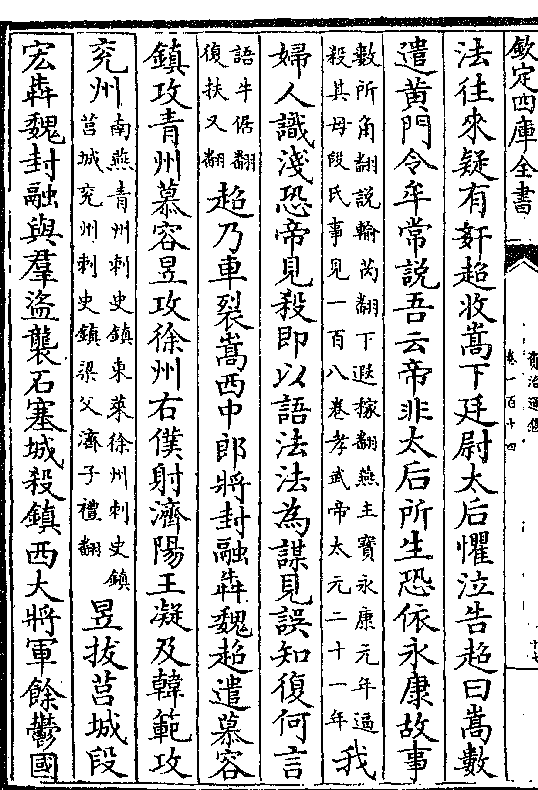 欽定四庫全書
卷一百十四
法往來疑有姧超收嵩下廷尉太后懼泣告超曰嵩數
遣黄門令牟常説吾云帝非太后所生恐依永康故事
數所角翻説輸芮翻下遐稼翻燕主寶永康元年逼
殺其母段氏事見一百八卷孝武帝太元二十一年
我
婦人識淺恐帝見殺即以語法法為謀見誤知復何言
語牛倨翻
復扶又翻
超乃車裂嵩西中郎將封融犇魏超遣慕容
鎮攻青州慕容昱攻徐州右僕射濟陽王凝及韓範攻
兖州
南燕青州刺史鎮東萊徐州刺史鎮
莒城兖州刺史鎮梁父濟子禮翻
昱拔莒城段
宏犇魏封融與羣盜襲石塞城殺鎮西大將軍餘鬱國